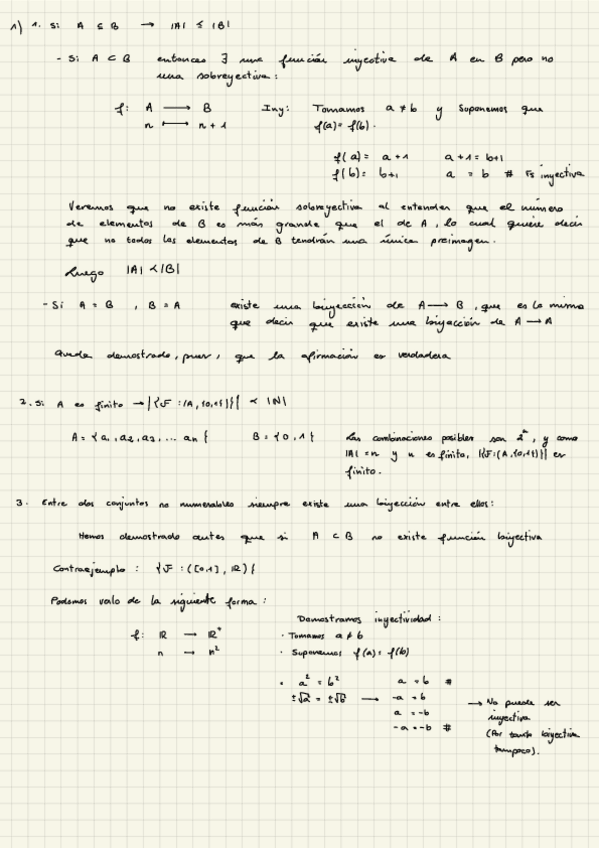 1) 1. Si A ⊆ B → |A| ≤ |B|
- Si A ⊂ B entonces ∃ una función inyectiva de A en B pero no
una sobreyectiva:
f: A ⟶ B Iny: Tomamos a ≠ b y suponemos que
n ⟼ n + 1 f(a) = f(b).
f(a) = a + 1 a + 1 = b + 1
f(b) = b + 1 a = b # Es inyectiva
Veremos que no existe función sobreyectiva al entender que el número
de elementos de B es más grande que el de A, lo cual quiere decir
que no todos los elementos de B tendrán una única preimagen.
Luego |A| < |B|
- Si A = B , B = A existe una biyección de A ⟶ B, que es lo mismo
que decir que existe una biyección de A ⟶ A
Queda demostrado, pues, que la afirmación es verdadera
2. Si A es finito → |{F : (A, {0,1})}| < |N|
A = {a1, a2, a3, ... an} B = {0, 1} Las combinaciones posibles son 2ⁿ, y como
|A| = n y n es finito, |{F : (A, {0,1})}| es
finito.
3. Entre dos conjuntos no numerables siempre existe una biyección entre ellos:
Hemos demostrado antes que si A ⊂ B no existe función biyectiva
Contraejemplo : {F : ([0,1], R)}
Podemos verlo de la siguiente forma :
Demostramos inyectividad :
f: R → R⁺ · Tomamos a ≠ b
n → n² · Suponemos f(a) = f(b)
· a² = b² a = b #
±√a² = ±√b² ⟶ -a = b
a = -b
-a = -b #
→ No puede ser
inyectiva
(Por tanto biyectiva
tampoco).